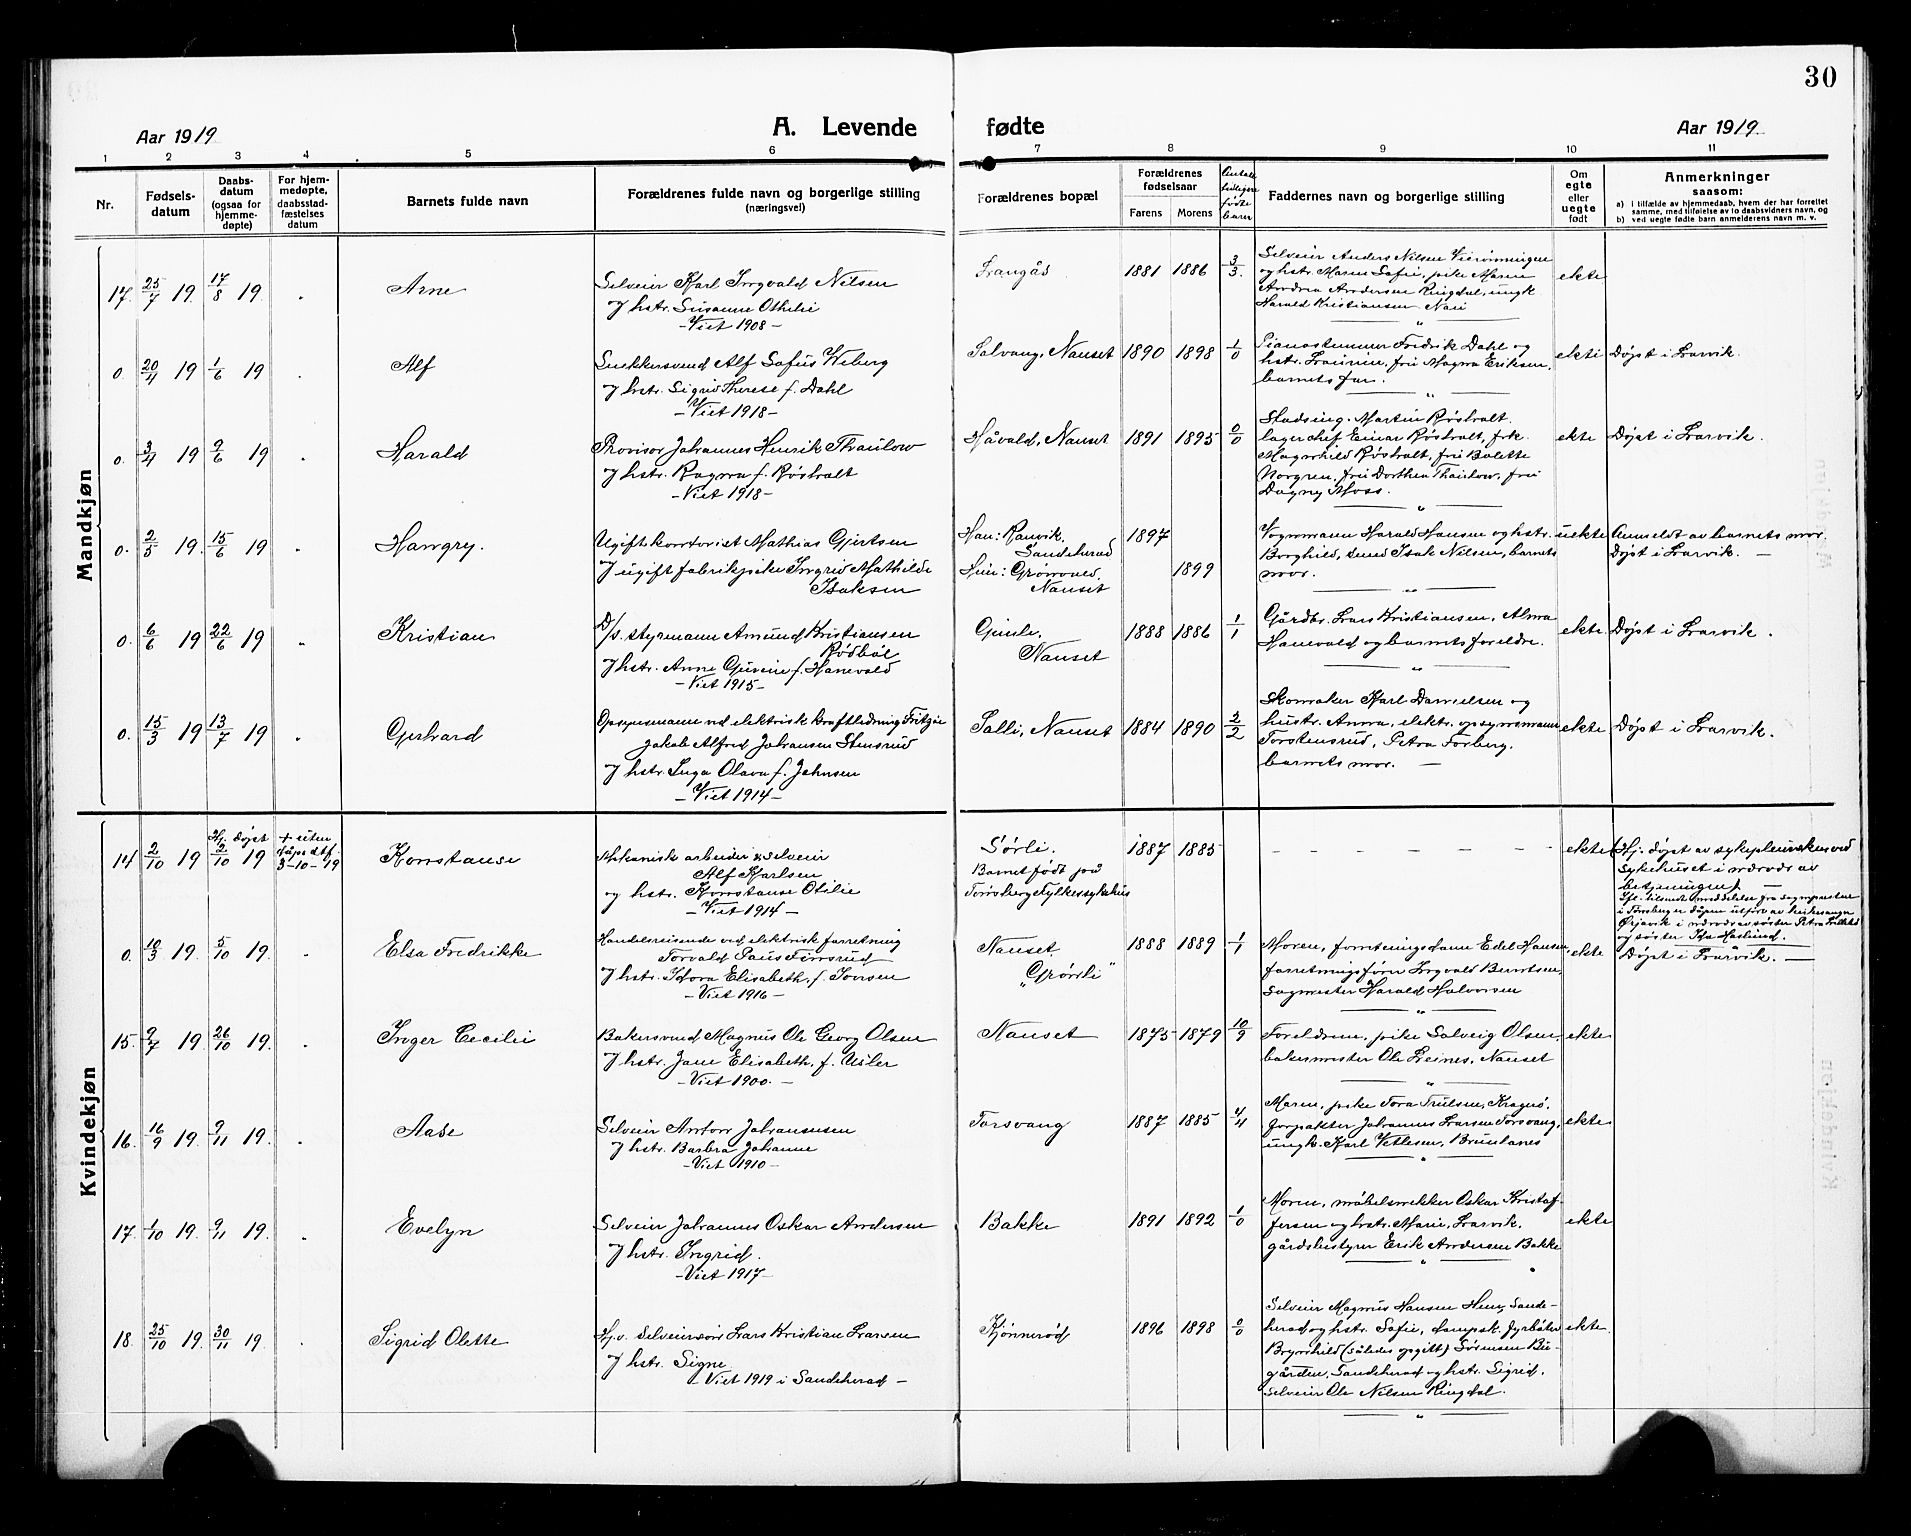 30
Aar 1919
A. Levende
fødte
Aar 1919
1 2 3 4 5 6 7 8 9 10 11
Nr.
Fødsels-
datum
Daabs-
datum
(ogsaa for
hjemme-
døpte)
For hjem-
medøpte,
daabsstad-
fæstelses
datum
Barnets fulde navn
Forældrenes fulde navn og borgerlige stilling
(næringsvei)
Forældrenes bopæl
Forældrenes
fødselsaar
Farens Morens
Antal
tidligere
fødte
barn
Faddernes navn og borgerlige stilling
Om
egte
eller
uegte
født
Anmerkninger
saasom:
a) i tilfælde av hjemmedaab, hvem der har forrettet
samme, med tilføielse av to daabsvidners navn, og
b) ved uegte fødte barn anmelderens navn m. v.
Mandkjøn
17. 25/7 19 17/8 19. Arne
Selveier Karl Ingvald Nilsen
og hstr. Susanne Othilie
- Viet 1908 -
Langås 1881 1886 3/3.
Selveier Anders Nilsen
og hstr. Maren Sofie, pike Maren
Andrea Andersen Ringdal, ungk.
Harald Kristiansen
ekte
0. 20/4 19 1/6 19. Alf
Snekkersvend Alf Sofus Weberg
og hstr. Sigrid Therese f. Dahl
- Viet 1918 -
Solvang, Nanset 1890 1898 1/0
Pianostemmer Fredrik Dahl og
hstr. Laurine, fru Magna Eriksen,
barnets far.
ekte Døpt i Larvik.
0. 3/4 19 9/6 19 Harald
Provisor Johannes Henrik Thaulow
og hstr. Ragna f. Røsholt
- Viet 1918 -
Håvald, Nanset 1891 1895 0/0
Stadsing. Martin Røsholt,
lagerchef Einar Røsholt, frk.
Magnhild Røsholt, fru Bolette
Norgren, fru Dorthea Thaulow, fru
Dagny Moss.
ekte Døpt i Larvik.
0. 2/5 19. 15/6 19 Hangry.
Ugift kontorist Mathias Gjertsen
og ugift fabrikpike Ingrid Mathilde
Isaksen
Han: Ranvik.
Sandeherad
Hun: Grønvold.
Nanset
1897
1899
Vognmann Harald Hansen og hstr.
Borghild, Isak Nilsen, barnets
mor.
uekte Anmeldt av barnets mor.
Døpt i Larvik. -
0. 6/6 19 22/6 19 Kristian
D/s. styrmann Amund Kristiansen
Rødbøl
og hstr. Anne f. Hanevold
- Viet 1915 -
Gimle.
Nanset
1888 1886 1/1
Gårdbr. Lars Kristiansen, Alma
Hanevold og barnets foreldre.
ekte Døpt i Larvik.
0. 15/3 19 13/7 19 Gerhard
Opsynsmann ved elektrisk kraftledning Fritzøe
Jakob Alfred Johansen Stensrud
og hstr. Inga Olava f. Johnsen
- Viet 1914 -
Solli, Nanset 1884 1890 2/2
Skomaker Karl Danielsen og
hustr. Anna, elektr. opsynsmann
Torstensrud, Petra Forberg,
barnets mor. -
ekte Døpt i Larvik.
Kvindekjøn
14 2/10 19 Hj. døpt 2/10 19
+ uten
dåps stf.
3-10-19
Konstanse
Mekanisk arbeider & selveier
Alf Karlsen
og hstr. Konstanse Otilie
- Viet 1914 -
Sørli.
Barnet født på
Tønsberg Fylkessykehus
1887 1885
- - - - - -
ekte (Hj. døpt av sykepleiersken ved
sykehuset i nærvær av
betjeningen). -
Ifl. tilsendt meddelelse fra sogneprester
i Tønsberg er dåpen utført av
i nærvær av søster Petra
og søster Ida Haslund.
0. 10/3 19. 5/10 19. Elsa Fredrikke
Handelsreisende ved elektrisk forretning
Torvald Paus Finsrud
og hstr. Thora Elisabeth, f. Iversen
- Viet 1916 -
Nanset.
„Grønli"
1888 1889 1/1
Moren, forretningsdame Edel Hansen,
forretningsfører Ingvald Berntsen,
sagmester Harald Halvorsen
ekte Døpt i Larvik. -
15. 9/7 19 26/10 19. Inger Cecilie
Bakersvend Magnus Ole Georg Olsen
og hstr. Jane Elisabeth, f. Usler
- Viet 1900. -
Nanset 1875 1879 10/9
Foreldrene, pike Solveig Olsen,
bakermester Ole Leines, Nanset
ekte
16. 16/9 19. 9/11 19. Aase
Selveier Anton Johannesen
og hstr. Barbra Johanne
- Viet 1910 -
Torsvang 1887 1885 4/4
Moren, pike Tora Truelsen, Kragerø,
forpakter Johannes Larsen Torsvang,
ungk. Karl Vetlesen, Brunlanes
ekte
17. 1/10 19. 9/11 19. Evelyn
Selveier Johannes Oskar Andersen
og hstr. Ingrid.
- Viet 1917 -
Bakke 1891 1892 1/0
Moren, møbelsnekker Oskar Kristof-
fersen og hstr. Marie, Larvik.
gårdsbestyrer Erik Andersen Bakke
ekte
18. 25/10 19. 30/11 19. Sigrid Olette
Hj. v. Selveiersøn Lars Kristian Larsen
og hstr. Signe
- Viet 1919 i Sandeherad -
Kjønnerød 1896 1898 0/0
Selveier Magnus Hansen Hem, Sande-
herad og hstr. Sofie, dampsk. fyrbøter
Brynhild (således opgitt) Sørensen Bu-
gården, Sandeherad og hstr. Sigrid,
selveier Ole Nilsen Ringdal.
ekte.